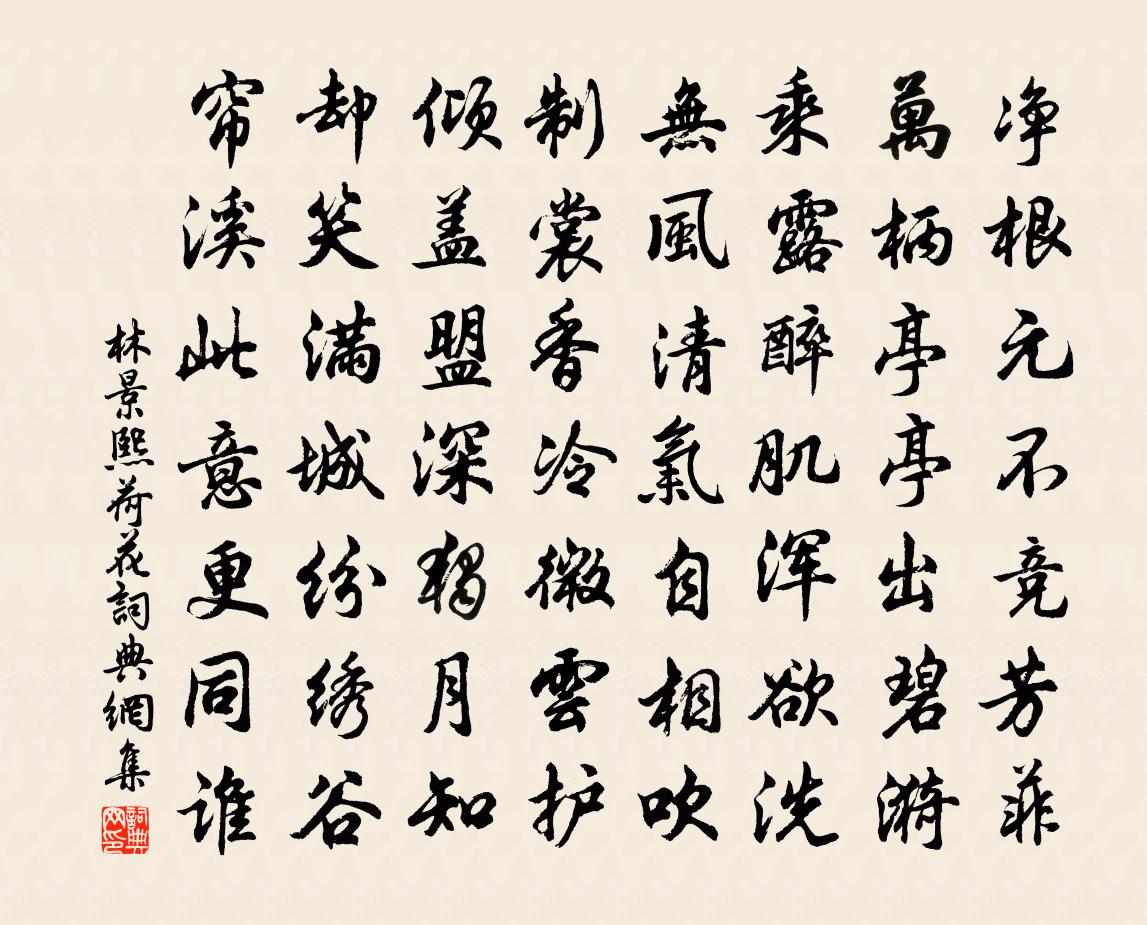 净根元不竞芳菲
萬柄亭亭出碧漪
乘露醉肌浑欲洗
無風清氣自相吹
制裳香冷微雲护
倾盖盟深独月知
却笑满城纷绣谷
帘溪此意更同谁
林景熙荷花詞典網集
詞典网印